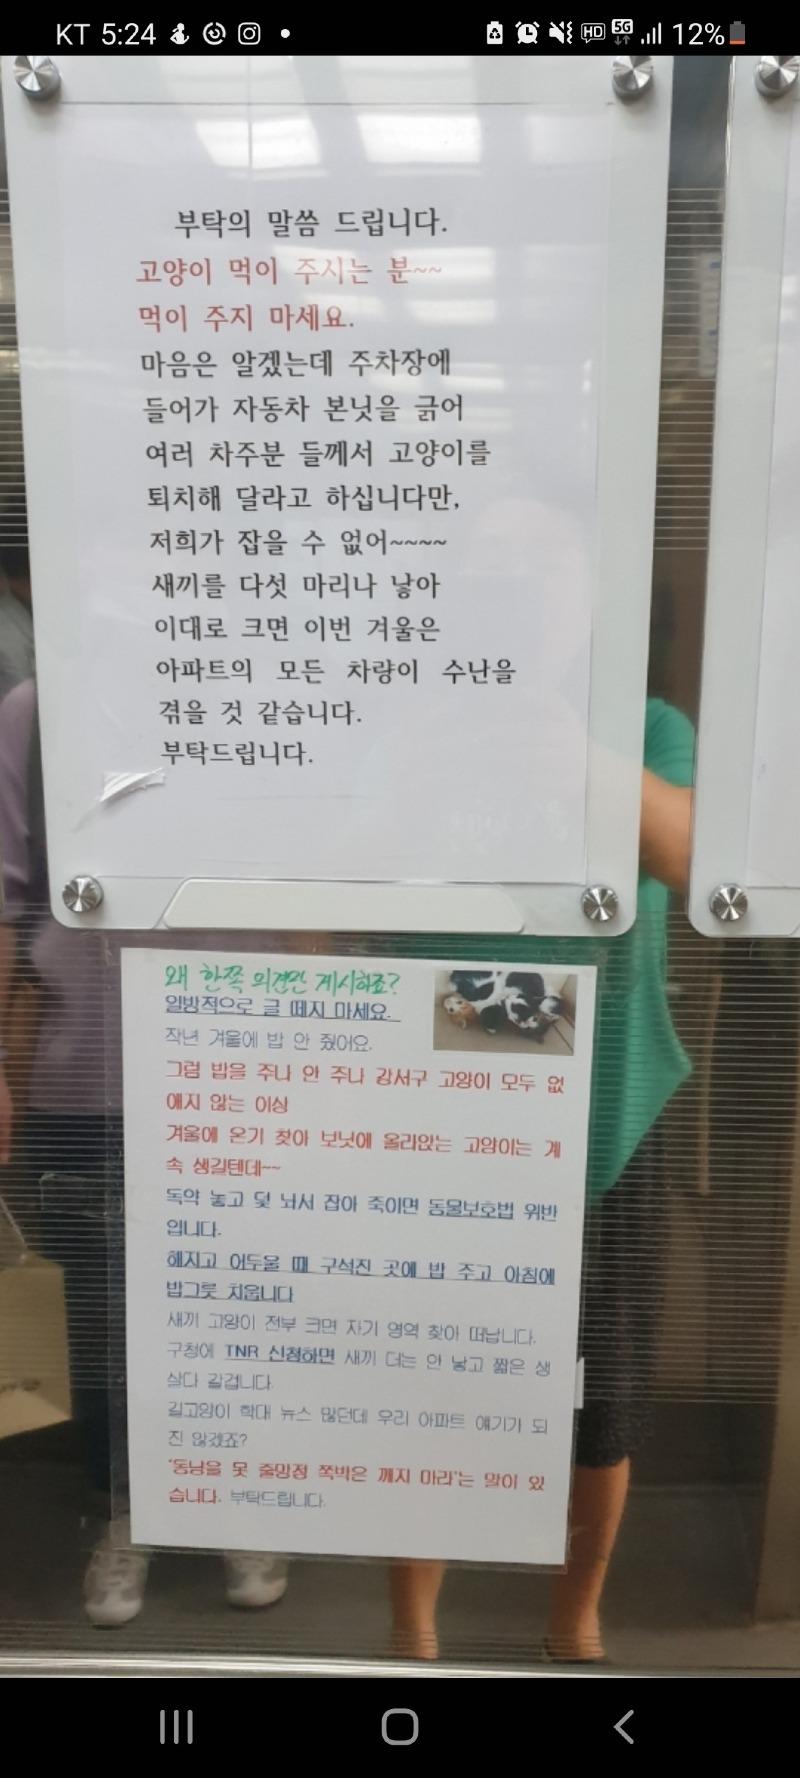 KT 5:24
HD 5G 12%
부탁의 말씀 드립니다.
고양이 먹이 주시는 분~~
먹이 주지 마세요.
마음은 알겠는데 주차장에
들어가 자동차 본닛을 긁어
여러 차주분 들께서 고양이를
퇴치해 달라고 하십니다만,
저희가 잡을 수 없어~~~~
새끼를 다섯 마리나 낳아
이대로 크면 이번 겨울은
아파트의 모든 차량이 수난을
겪을 것 같습니다.
부탁드립니다.
왜 한쪽 의견만 게시하죠?
일방적으로 글 떼지 마세요.
작년 겨울에 밥 안 줬어요.
그럼 밥을 주나 안 주나 강서구 고양이 모두 없
애지 않는 이상
겨울에 온기 찾아 보닛에 올라앉는 고양이는 계
속 생길텐데~~
독약 놓고 덫 놔서 잡아 죽이면 동물보호법 위반
입니다.
해지고 어두울 때 구석진 곳에 밥 주고 아침에
밥그릇 치웁니다
새끼 고양이 전부 크면 자기 영역 찾아 떠납니다.
구청에 TNR 신청하면 새끼 더는 안 낳고 짧은 생
살다 갈겁니다.
길고양이 학대 뉴스 많던데 우리 아파트 얘기가 되
진 않겠죠?
'동냥을 못 줄망정 쪽박은 깨지 마라'는 말이 있
습니다. 부탁드립니다.